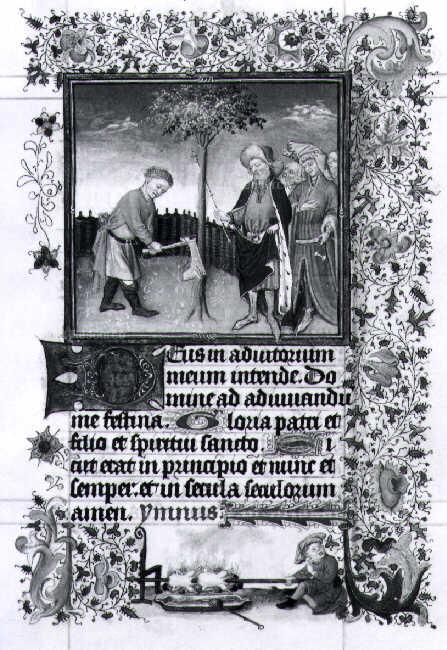 Deus in adiutorium
meum intende. Do
mine ad adiuuandu
me festina. Gloria patri et
filio et spiritui sancto. Si
cut erat in principio et nunc et
semper. et in secula seculorum
amen. Ymnus